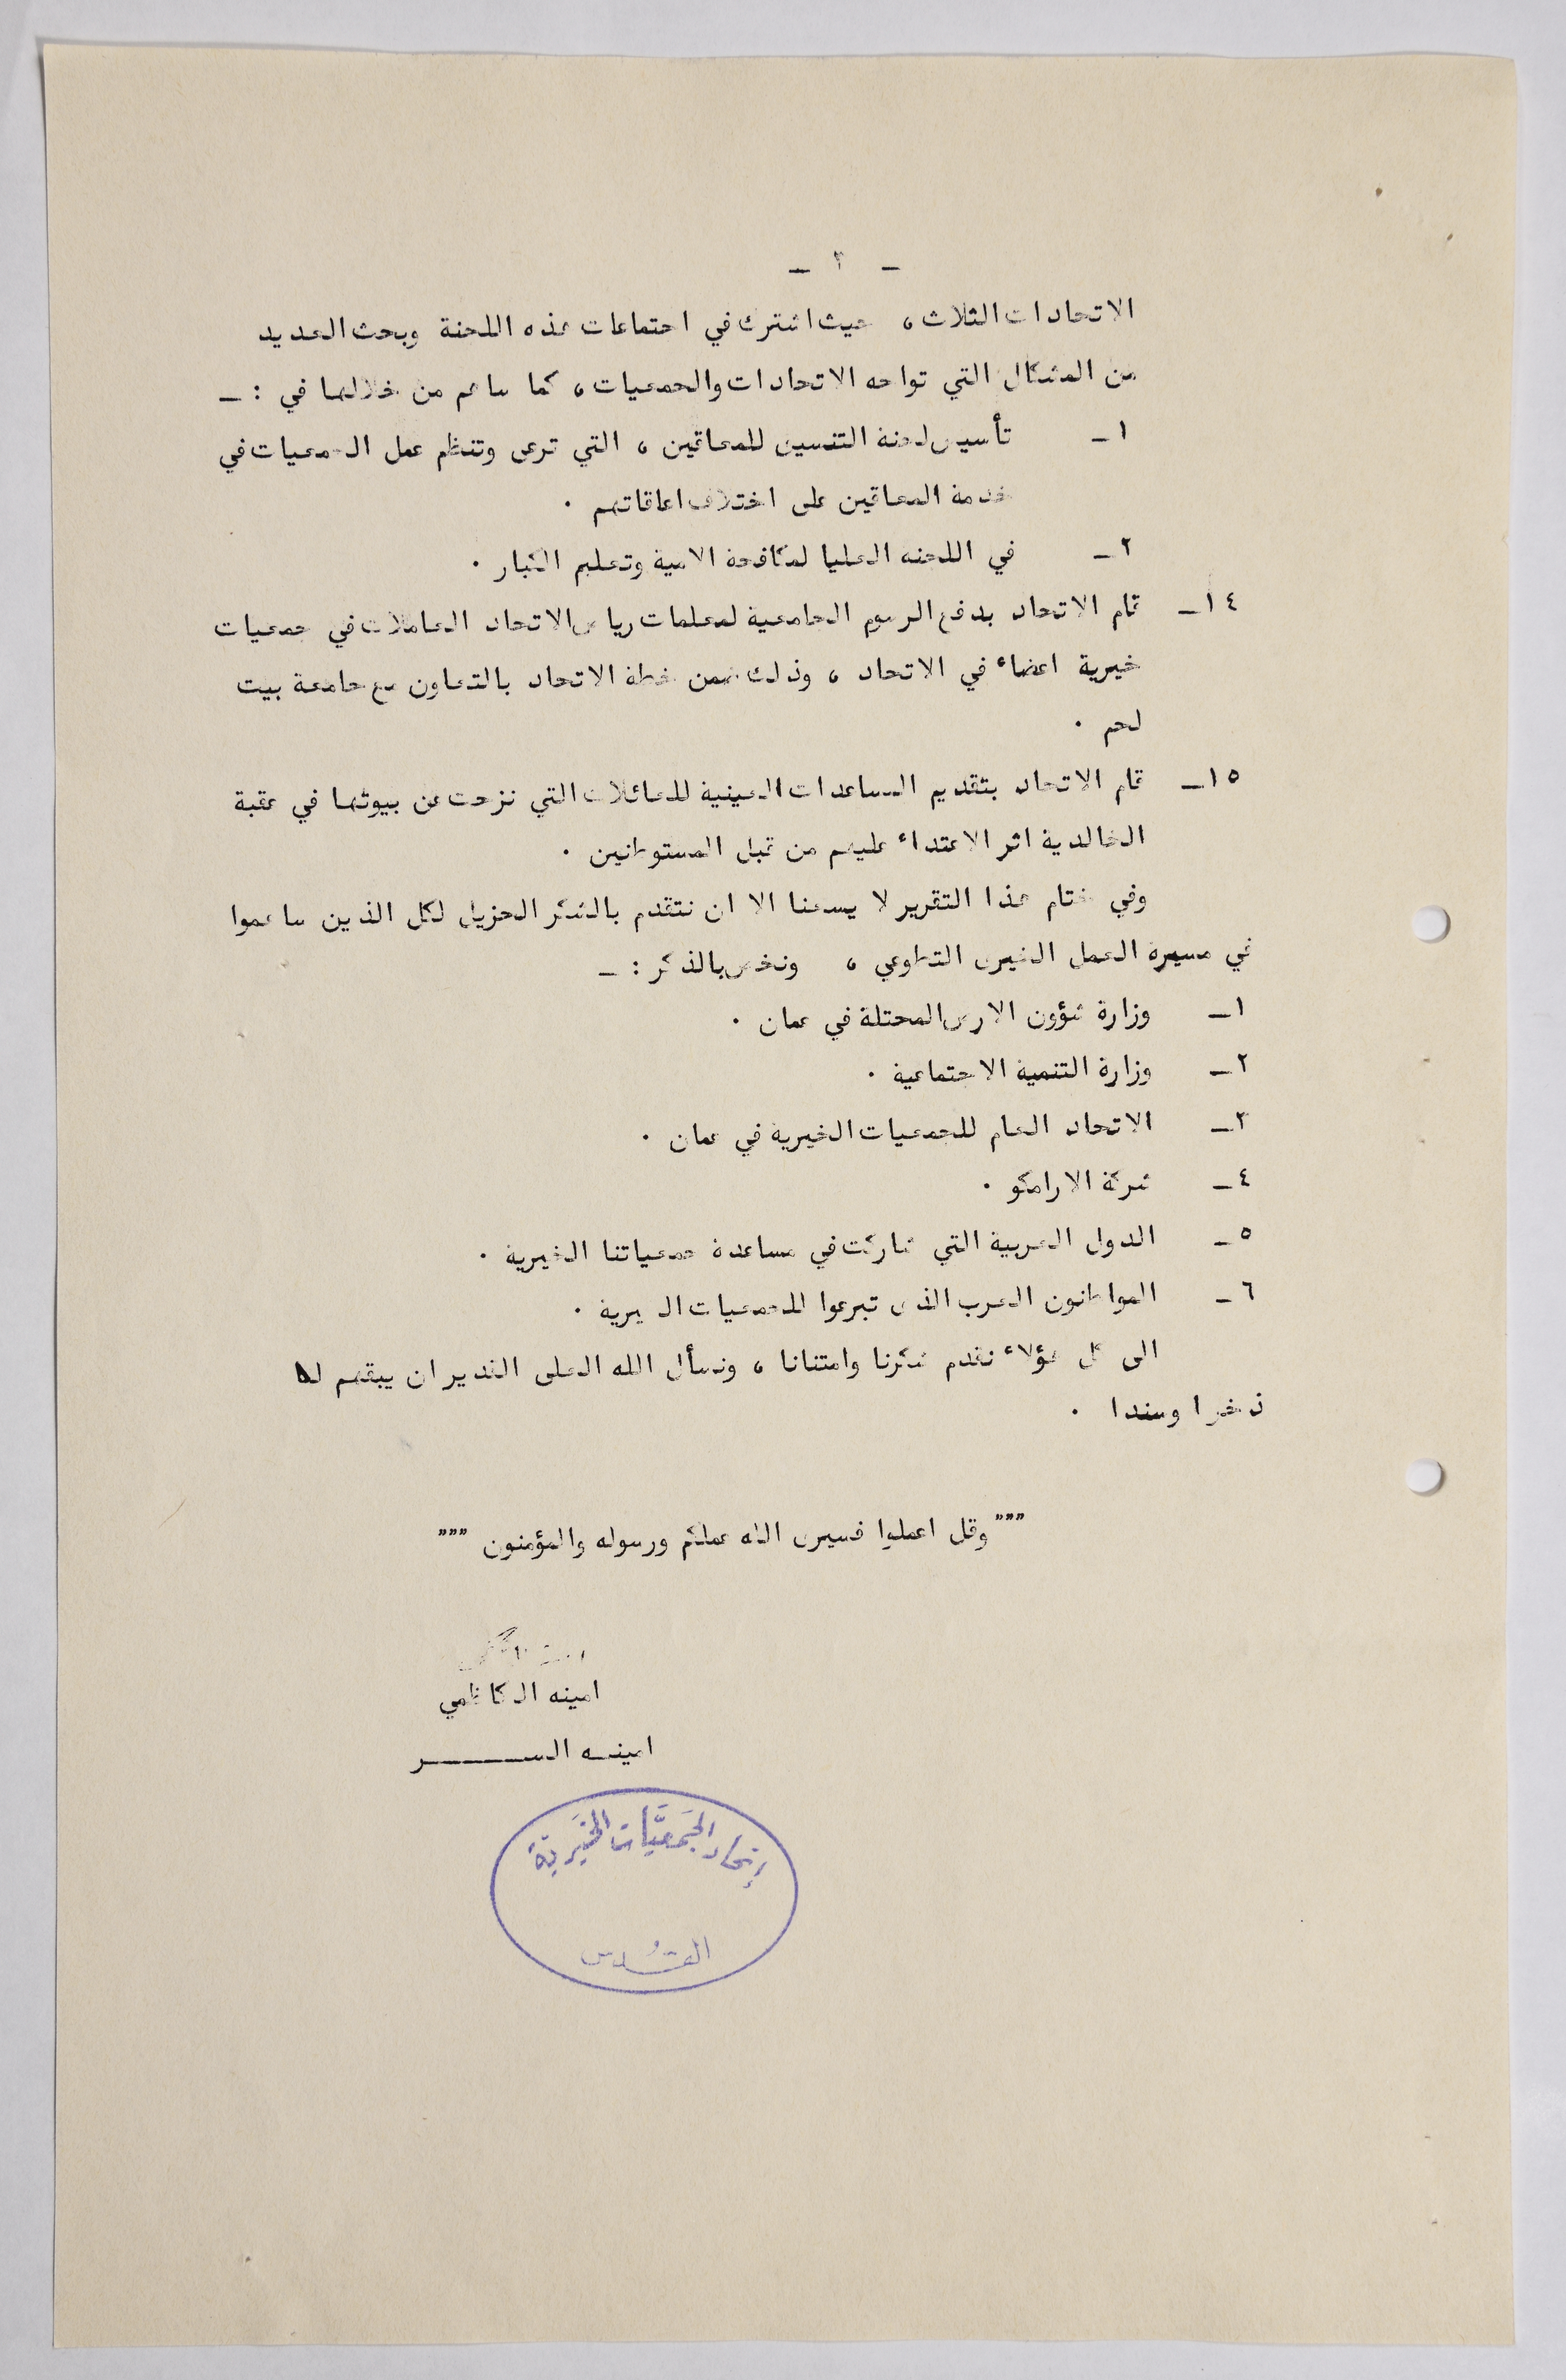 - ٣ -
الاتحادات الثلاث ، حيث اشترك في اجتماعات هذه اللجنة وبحث العديد
من المشاكل التي تواجه الاتحادات والجمعيات ، كما ساهم من خلالها في : -
١ - تأسيس لجنة التنسيق للمعاقين ، التي ترعى وتنظم عمل الجمعيات في
خدمة المعاقين على اختلاف اعاقاتهم .
٢ - في اللجنه العليا لمكافحة الامية وتعليم الكبار .
١٤ - قام الاتحاد بدفع الرسوم الجامعية لمعلمات رياض الاتحاد العاملات في جمعيات
خيرية اعضاء في الاتحاد ، وذلك ضمن خطة الاتحاد بالتعاون مع جامعة بيت
لحم .
١٥ - قام الاتحاد بتقديم المساعدات العينية للعائلات التي نزحت عن بيوتها في عقبة
الخالدية اثر الاعتداء عليهم من قبل المستوطنين .
وفي ختام هذا التقرير لا يسعنا الا ان نتقدم بالشكر الجزيل لكل الذين ساهموا
في مسيرة العمل الخيرى التطوعي ، ونخص بالذكر : -
١ - وزارة شؤون الارض المحتلة في عمان .
٢ - وزارة التنمية الاجتماعية .
٣ - الاتحاد العام للجمعيات الخيرية في عمان .
٤ - شركة الارامكو .
٥ - الدول العربية التي شاركت في مساعدة جمعياتنا الخيرية .
٦ - المواطنون العرب الذى تبرعوا للجمعيات الخيرية .
الى كل هؤلاء نقدم شكرنا وامتنانا ، ونسأل الله العلى القدير ان يبقهم لنا
ذخرا وسندا .
""" وقل اعملوا فسيرى الله عملكم ورسوله والمؤمنون """
امينه الكاظمي
امينـه الســـــــر
إتحاد الجمعيَّات الخَيريّة
القُدس